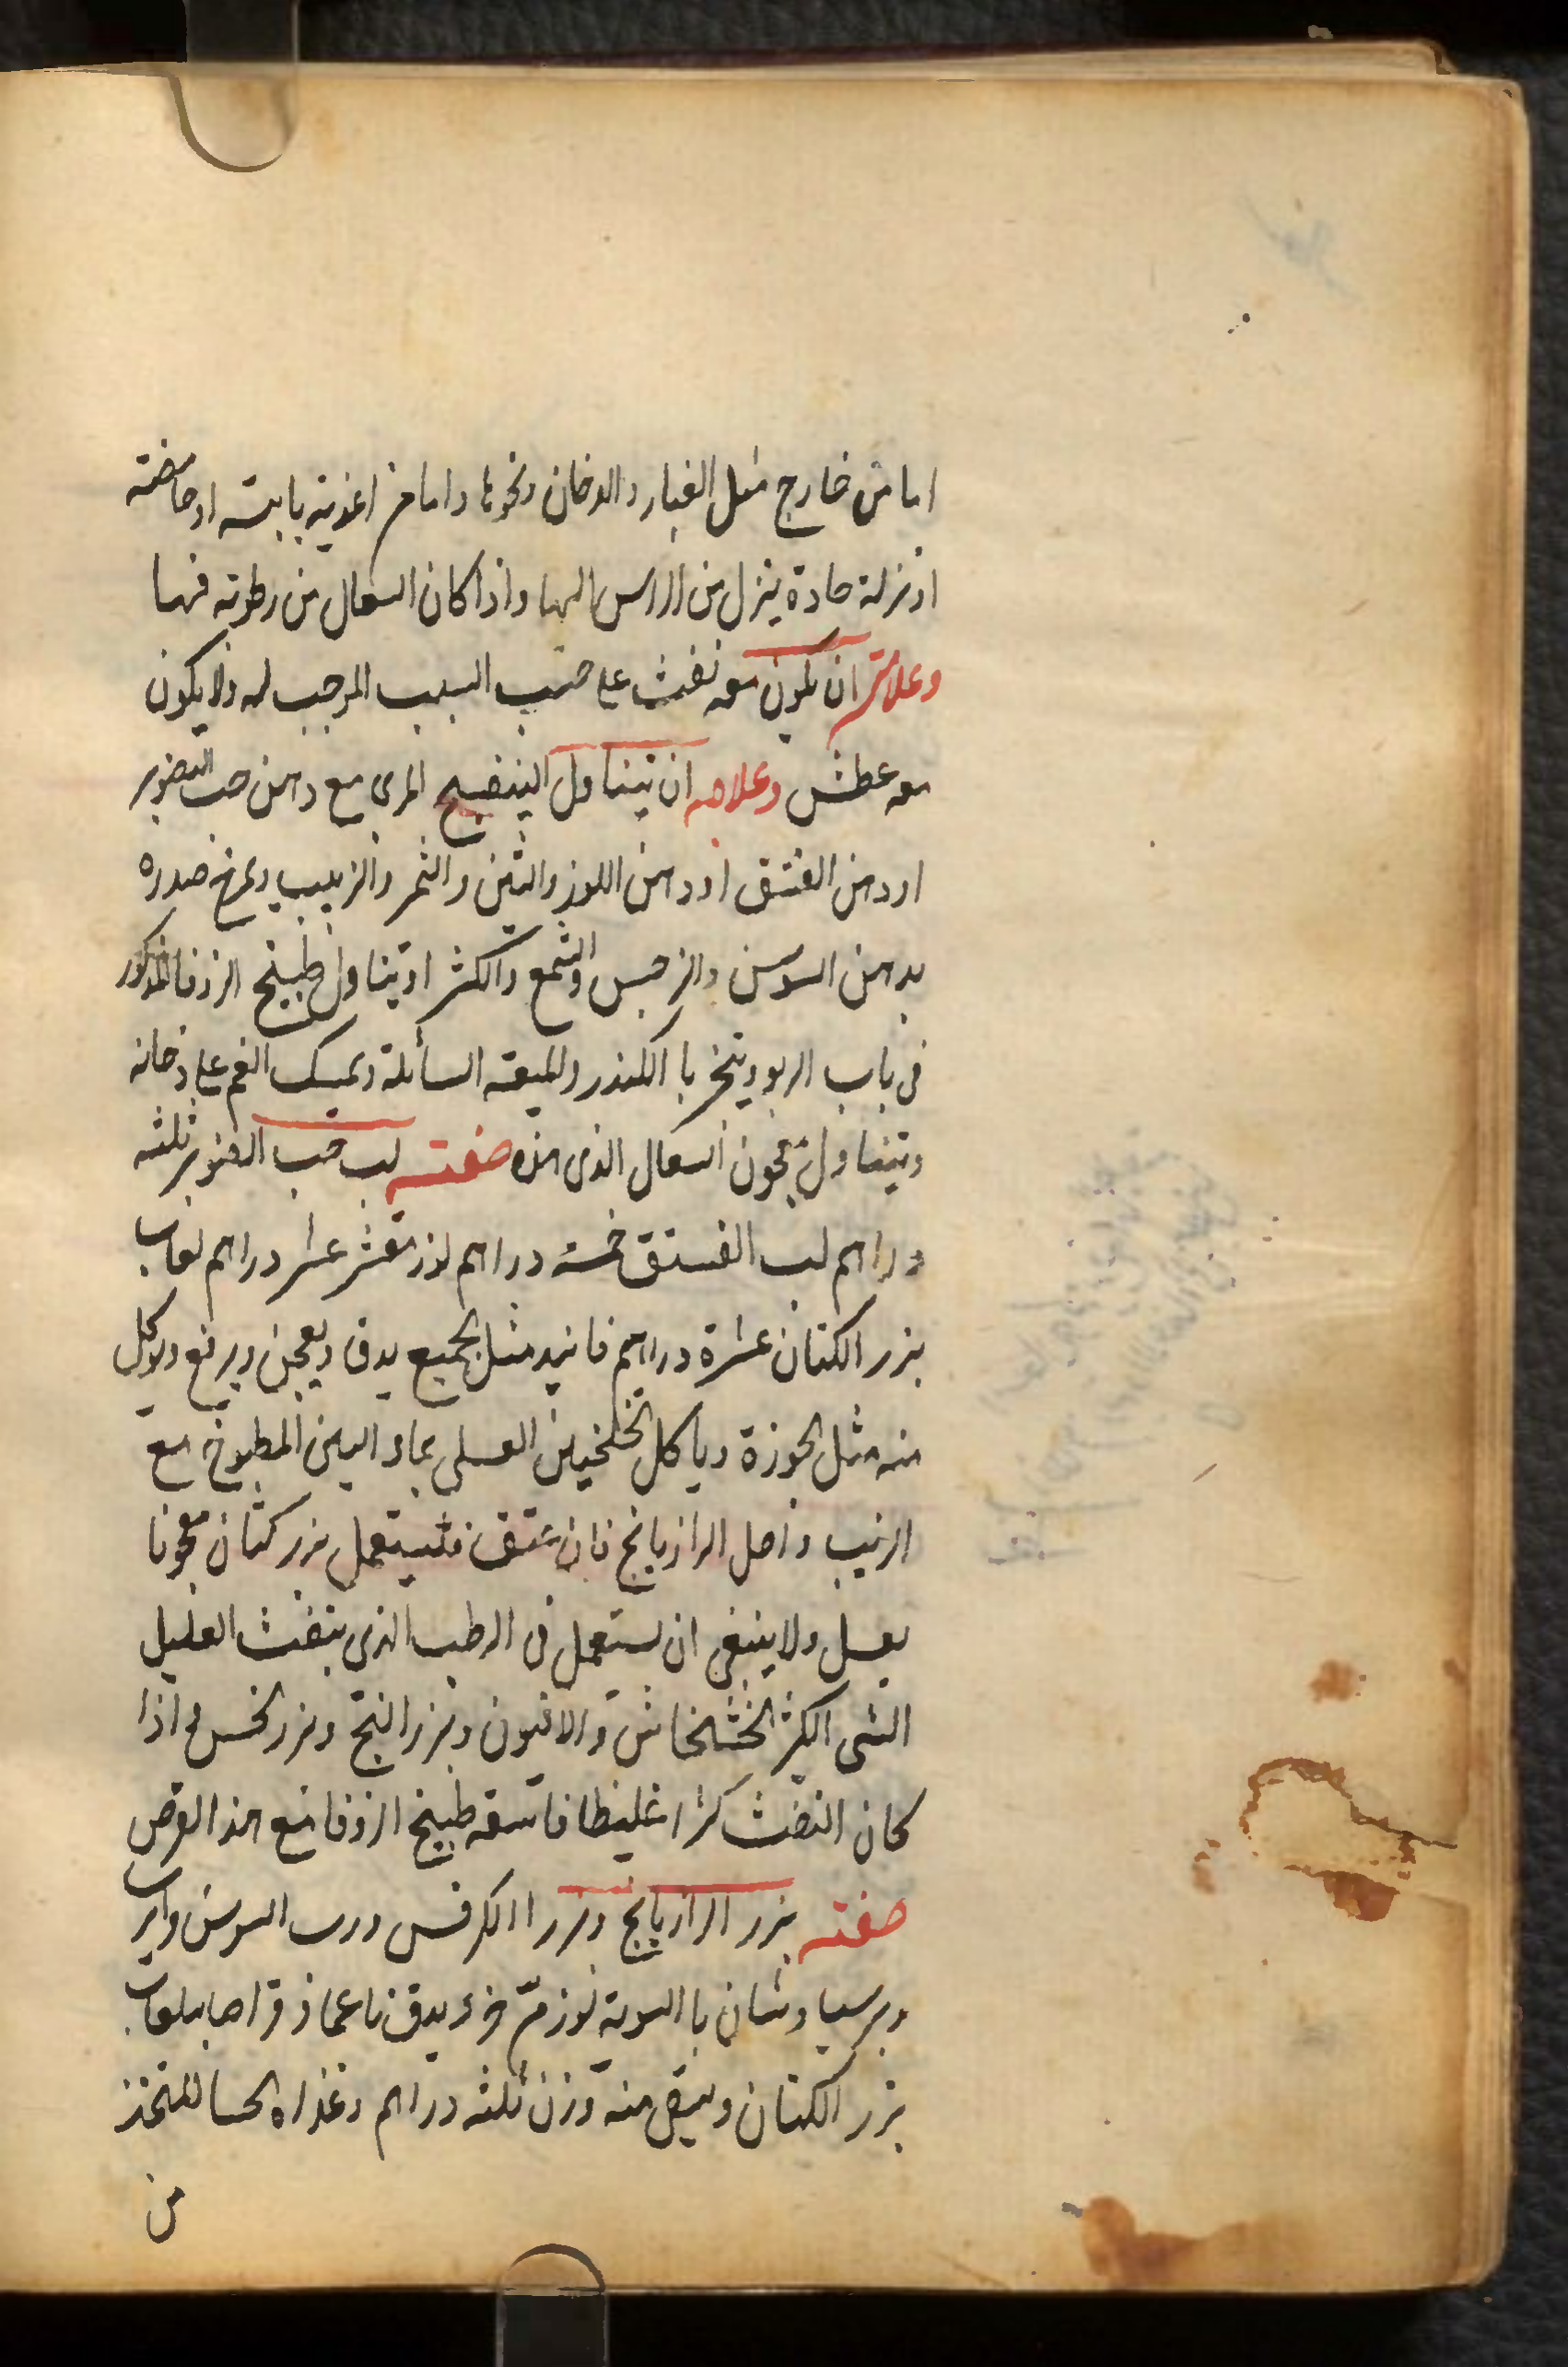 اما من خارج مثل الغبار والدخان ونحوها واما من اغذية يابسة او حامضة
او نزلة حادة ينزل من الراس اليها واذا كان السعال من رطوبة فيها
وعلامته ان يكون معه نفث على حسب السبب الموجب له ولا يكون
معه عطش وعلاجه ان يتناول البنفسج المربى مع دهن حب الصنوبر
او دهن الفستق او دهن اللوز والتين والتمر والزبيب ويمرخ صدره
بدهن السوسن والنرجس والشمع والكثيرا ويتناول طبيخ الزوفا المذكور
فى باب الربو ويتبخر باالكندر والميعة السائلة ويمسك الفم على دخانه
ويتناول معجون السعال الذى هذه صفته لب حب الصنوبر ثلثه
دراهم لب الفستق خمسة دراهم لوز مقشر عشر دراهم لعاب
بزر الكتان عشرة دراهم فانيد مثل الجميع يدق ويعجن ويرفع ويوكل
منه مثل الجوزة وياكل الخلنجبين العسلى بماء التين المطبوخ مع
الزبيب واصل الرازيانج فان فليستعمل بزر كتان معجونا
بعسل ولا ينبغى ان يستعمل فى الرطب الذى ينفث العليل
الشى الكثير الخشخاش والافيون وبزر البنج وبزر الخس واذا
كان النفث كثيرا غليظا فاسقه طبيخ الزوفا مع هذا القرص
صفته بزر الرازيانج وبزر االكرفس ورب السوس
وبرسياوشان باالسوية لوز مر جزء يدق ناعما ويقرص بلعاب
بزر الكتان ويسقى منه وزن ثلثه دراهم وغذاه الحسا المتخذ
من